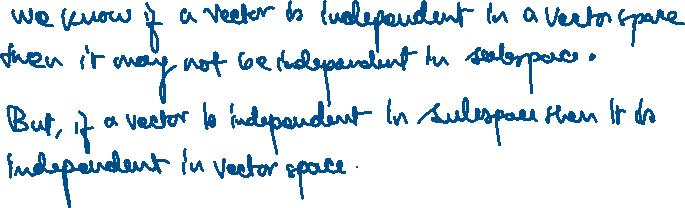 we know if a vector is independent in a vector space
then it may not be independent in subspace.
But, if a vector is independent in subspace then it is
independent in vector space.